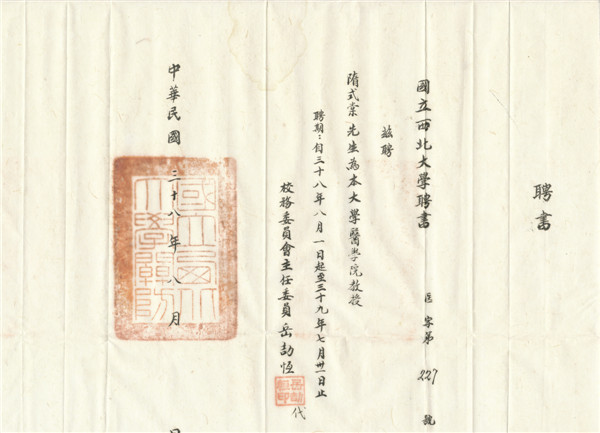 聘書
國立西北大學聘書 醫字第 227 號
茲聘
隋式棠先生為本大學醫學院教授
聘期：自三十八年八月一日起至三十九年七月卅一日止
校務委員會主任委員岳劼恆 代
中華民國三十八年八月
國立西北大學關防